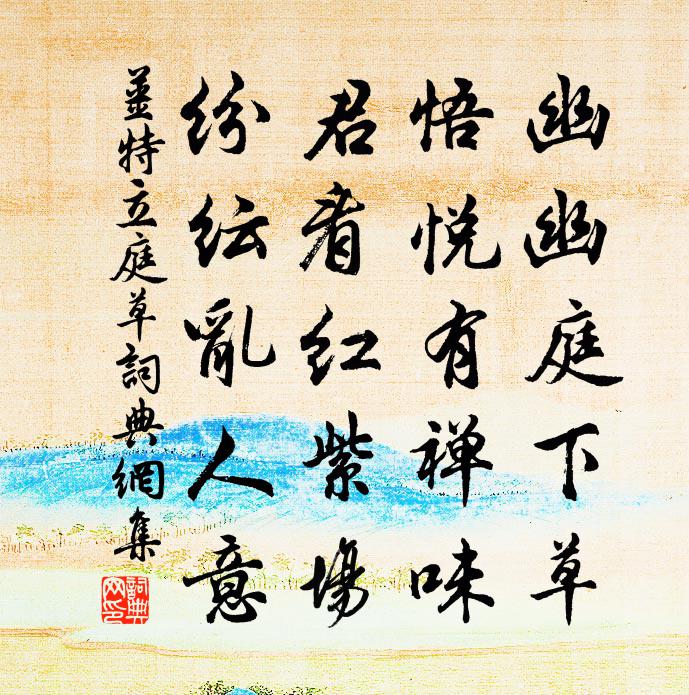 幽幽庭下草
悟悅有禪味
君看紅紫場
紛紜亂人意
薑特立庭草詞典網集
詞典网印